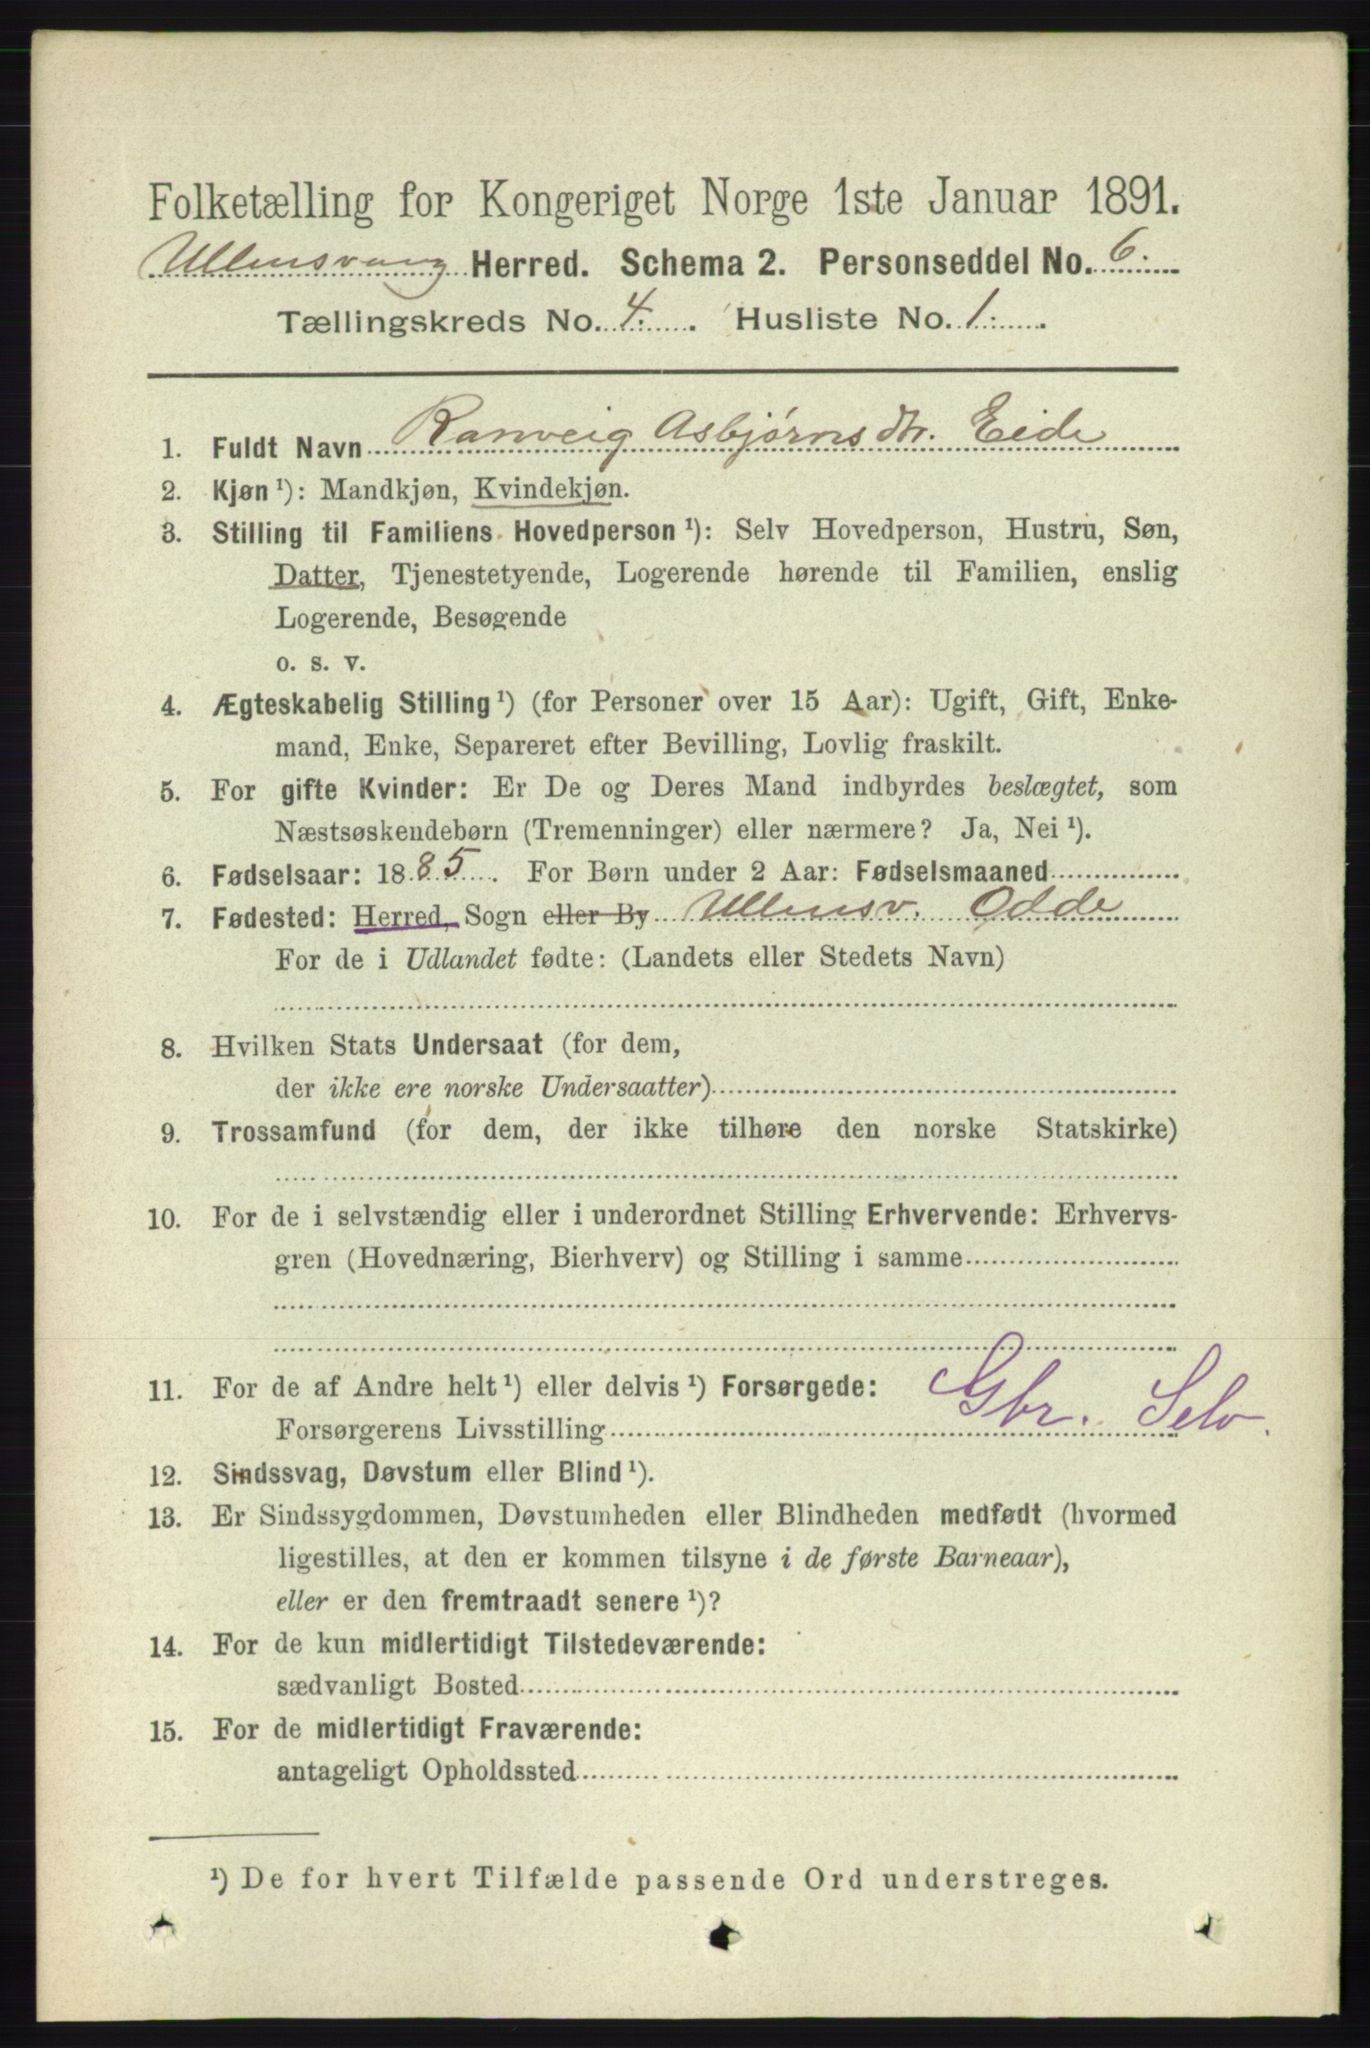 Folketælling for Kongeriget Norge 1ste Januar 1891.
Ullensvang Herred. Schema 2. Personseddel No. 6.
Tællingskreds No. 4. Husliste No. 1.
1. Fuldt Navn Ranveig Asbjørnsdtr. Eide
2. Kjøn ¹): Mandkjøn, Kvindekjøn.
3. Stilling til Familiens Hovedperson ¹): Selv Hovedperson, Hustru, Søn,
Datter, Tjenestetyende, Logerende hørende til Familien, enslig
Logerende, Besøgende
o. s. v.
4. Ægteskabelig Stilling ¹) (for Personer over 15 Aar): Ugift, Gift, Enke-
mand, Enke, Separeret efter Bevilling, Lovlig fraskilt.
5. For gifte Kvinder: Er De og Deres Mand indbyrdes beslægtet, som
Næstsøskendebørn (Tremenninger) eller nærmere? Ja, Nei ¹).
6. Fødselsaar: 1885. For Børn under 2 Aar: Fødselsmaaned
7. Fødested: Herred, Sogn eller By Ullensv. Odde
For de i Udlandet fødte: (Landets eller Stedets Navn)
8. Hvilken Stats Undersaat (for dem,
der ikke ere norske Undersaatter)
9. Trossamfund (for dem, der ikke tilhøre den norske Statskirke)
10. For de i selvstændig eller i underordnet Stilling Erhvervende: Erhvervs-
gren (Hovednæring, Bierhverv) og Stilling i samme
11. For de af Andre helt ¹) eller delvis ¹) Forsørgede:
Forsørgerens Livsstilling Gbr. Selv.
12. Sindssvag, Døvstum eller Blind ¹).
13. Er Sindssygdommen, Døvstumheden eller Blindheden medfødt (hvormed
ligestilles, at den er kommen tilsyne i de første Barneaar),
eller er den fremtraadt senere ¹)?
14. For de kun midlertidigt Tilstedeværende:
sædvanligt Bosted
15. For de midlertidigt Fraværende:
antageligt Opholdssted
¹) De for hvert Tilfælde passende Ord understreges.